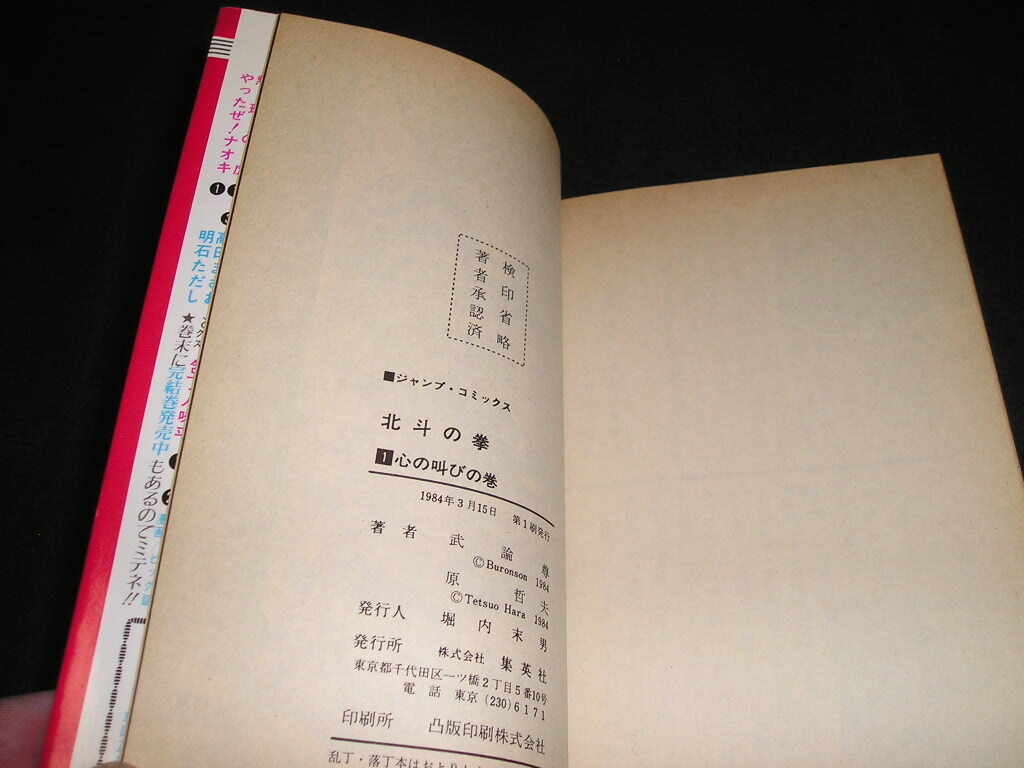 検印省略
著者承認済
■ジャンプ・コミックス
北斗の拳
1心の叫びの巻
1984年3月15日 第1刷発行
著者 武論尊
©Buronson 1984
原哲夫
©Tetsuo Hara 1984
発行人 堀内末男
発行所 株式会社 集英社
東京都千代田区一ツ橋2丁目5番10号
電話 東京(230)6171
印刷所 凸版印刷株式会社
乱丁・落丁本はおと
やったぜ!ナオキ
明石ただし
★巻末に完結巻発売中もあるのでミテネ!!